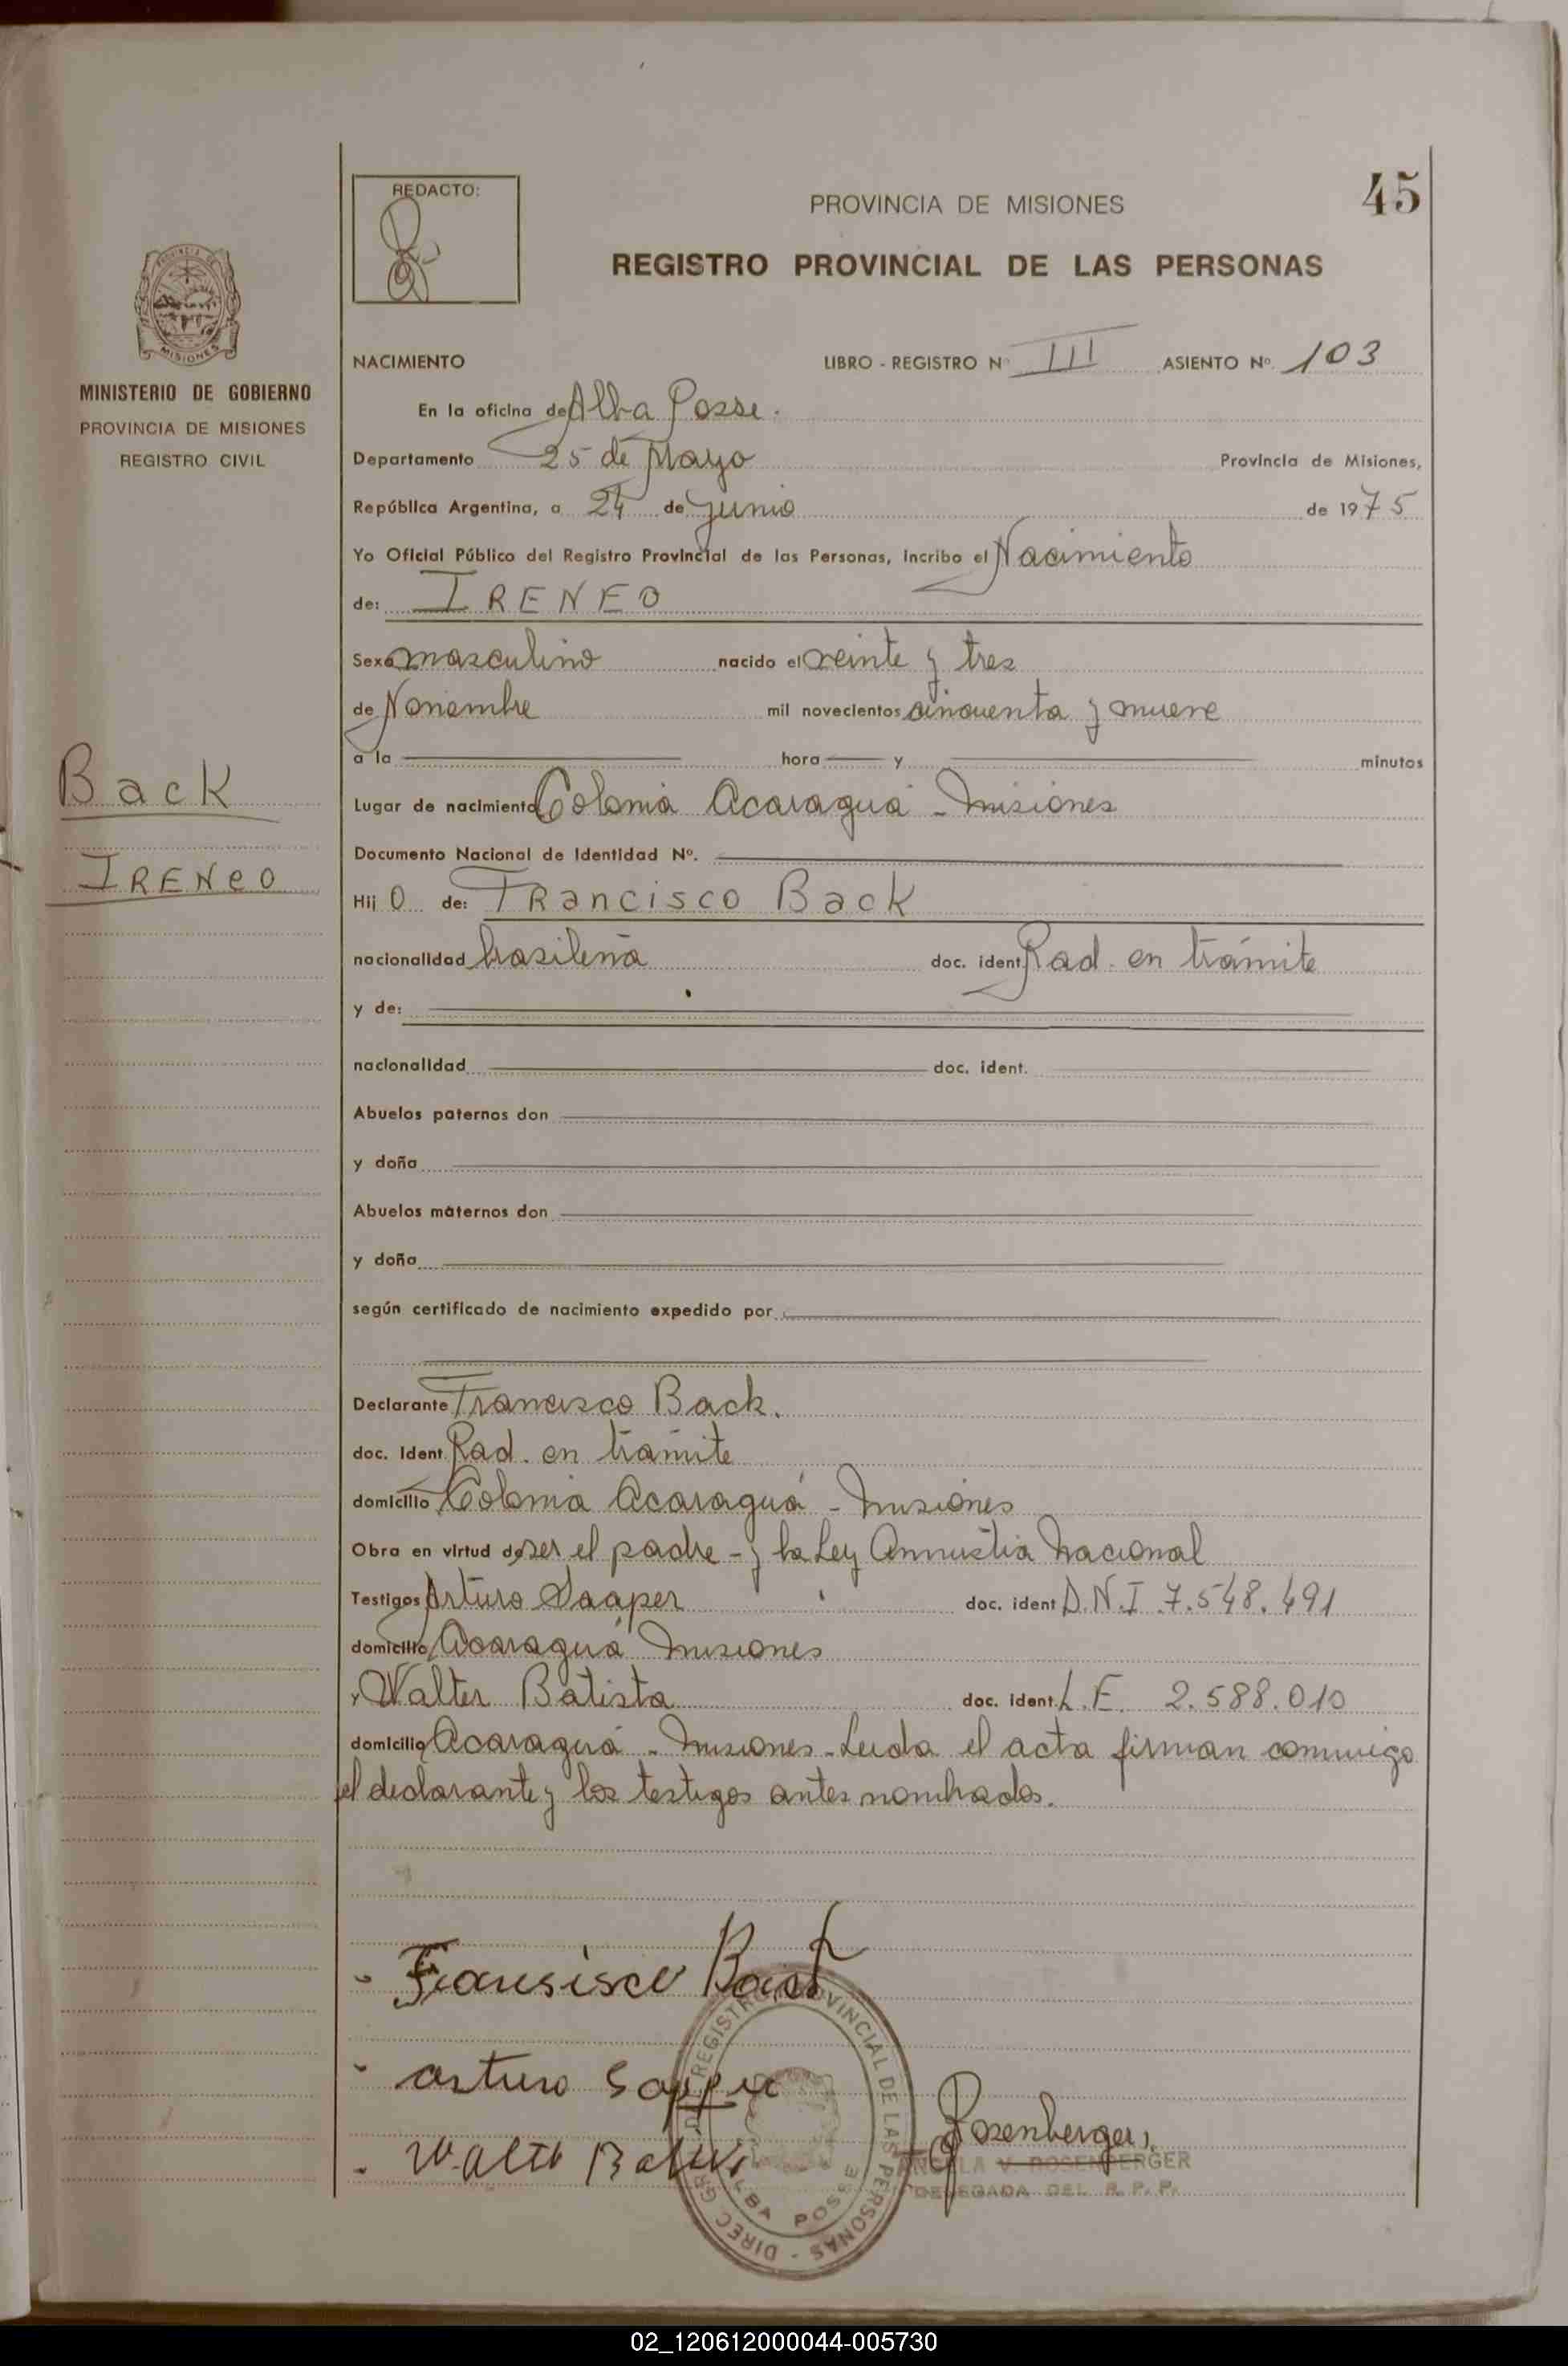 45
REDACTO:
PROVINCIA DE MISIONES
REGISTRO PROVINCIAL DE LAS PERSONAS
PROVINCIA DE
MISIONES
MINISTERIO DE GOBIERNO
PROVINCIA DE MISIONES
REGISTRO CIVIL
Back
IRENEO
NACIMIENTO LIBRO - REGISTRO Nº III ASIENTO Nº. 103
En la oficina de Alba Posse.
Departamento 25 de Mayo Provincia de Misiones,
República Argentina, a 24 de Junio de 1975
Yo Oficial Público del Registro Provincial de las Personas, incribo el Nacimiento
de: IRENEO
Sexo masculino nacido el veinte y tres
de Noviembre mil novecientos cincuenta y nueve
a la hora y minutos
Lugar de nacimiento Colonia Acaraguá - Misiones
Documento Nacional de Identidad Nº.
Hij o de: Francisco Back
nacionalidad brasileña doc. ident. Rad. en trámite
y de:
nacionalidad doc. ident.
Abuelos paternos don
y doña
Abuelos maternos don
y doña
según certificado de nacimiento expedido por
Declarante Francisco Back.
doc. Ident. Rad. en trámite
domicilio Colonia Acaraguá - Misiones
Obra en virtud de ser el padre - y la Ley Amnistia Nacional
Testigos Arturo Saaper doc. ident. D.N.I 7.548.491
domicilio Acaraguá Misiones
y Walter Batista doc. ident. L.E. 2.588.010
domicilio Acaraguá - Misiones - Leida el acta firman conmigo
el declarante y los testigos antes nombrados.
- Fransisco Back
- arturo Sapper
- Walter
Rosenberger
ANGELA V. ROSENBERGER
DELEGADA DEL R. P. P.
DIREC. GR. DEL REGISTRO PROVINCIAL DE LAS PERSONAS
ALBA POSSE
02_120612000044-005730